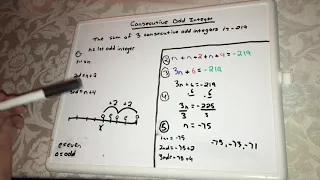 Consecutive Odd Integer
The sum of 3 consecutive odd integers is -219
n = 1st odd integer
1st = n
2nd = n+2
3rd = n+4
+2 +2
e = even
o = odd
② n + n + 2 + n + 4 = -219
③ 3n + 6 = -219
④ 3n + 6 = -219
-6 -6
3n = -225
3 3
⑤ n = -75
1st = -75
2nd = -75+2
3rd = -75+4
-75, -73, -71